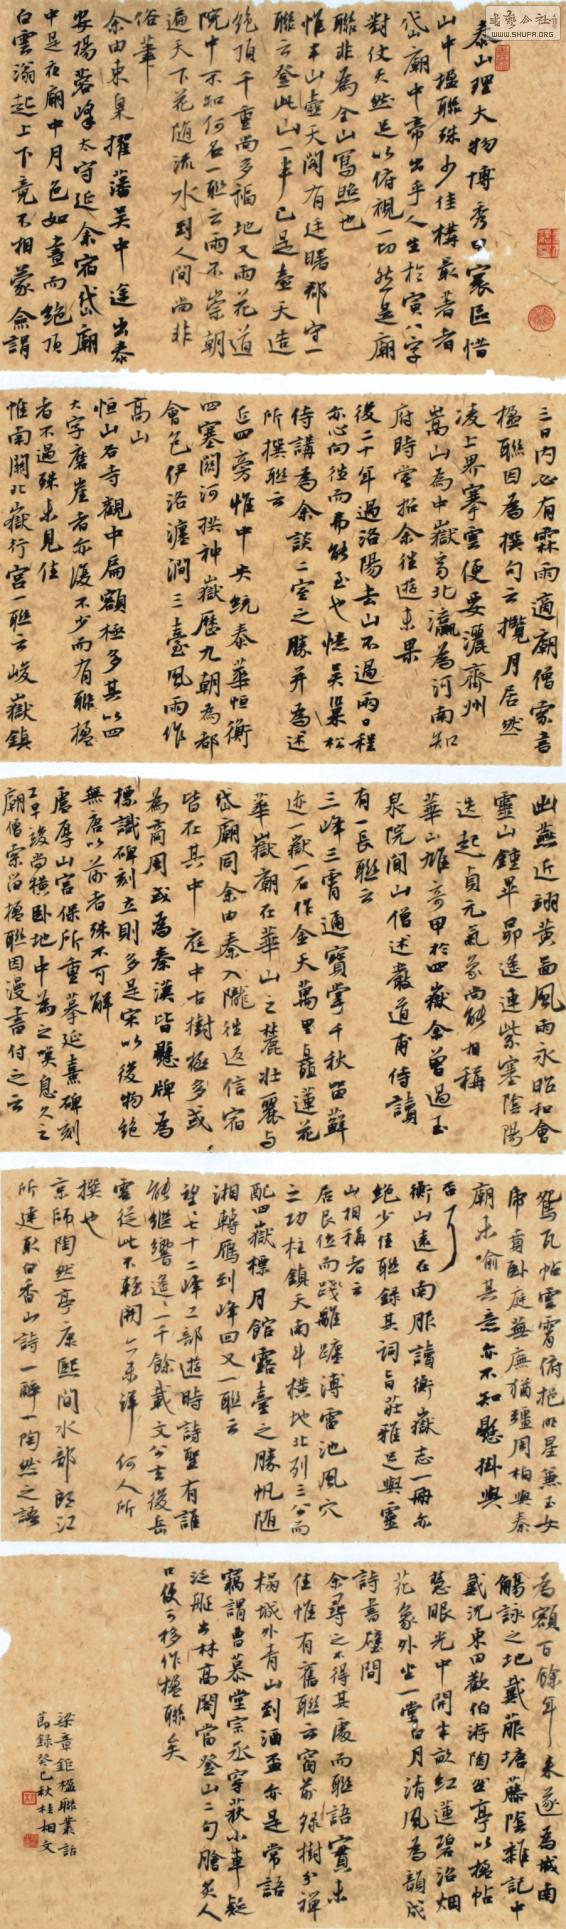 書藝公社
WWW.SHUFA.ORG
泰山理大物博秀甲寰區惜
山中楹聯殊少佳構最著者
岱廟中帝出乎人生於寅八字
對仗天然足以俯視一切然是廟
聯非為全山寫照也
惟半山壺天閣有廷曙郡守一
聯云登此山一半已是壺天造
絕頂千重尚多福地又雨花道
院中不知何名一聯云雨不崇朝
遍天下花隨流水到人間尚非
俗筆
余由東臬擢藩吳中道出泰
安楊蓉峰太守延余宿岱廟
中是夜廟中月色如晝而絕頂
白雲滃起上下竟不相蒙僉謂
三日內必有霖雨適廟僧索書
楹聯因為撰句云攬月居然
凌上界搴雲便要灑齊州
嵩山為中嶽高北瀛為河南知
府時嘗招余往遊未果
後二十年過洛陽去山不過兩日程
亦心向往而弗能至也憶吳巢松
侍講為余談二室之勝并為述
所撰聯云
近四旁惟中央統泰華恒衡
四塞關河拱神嶽歷九朝為都
會包伊洛瀍澗三臺風雨作
高山
恒山各寺觀中扁額極多其以四
大字磨崖者亦復不少而有聯楹
者不過殊未見佳
惟南關北嶽行宮一聯云峻嶽鎮
幽燕近翊黄圖風雨永昭和會
靈山鍾畢昴遙連紫塞陰陽
迭起貞元氣象尚能相稱
華山雄奇甲於四嶽余曾過玉
泉院聞山僧述嚴道甫侍讀
有一長聯云
三峰三霄通寶掌千秋留蘚
迹一嶽一石作金天萬里矗蓮花
華嶽廟在華山之麓壯麗與
岱廟同余由秦入隴往返信宿
皆在其中庭中古樹極多或
為商周或為秦漢皆懸牌為
標識碑刻立則多是宋以後物絕
無唐以前者殊不可解
盧厚山宮保所重摹延熹碑刻
工早竣尚橫臥地中為之嘆息久之
廟僧索留楹聯因漫書付之云
鴛瓦帖雲霄俯挹明星兼玉女
虎賁臥庭蕪廡猶殭周柏與秦
廟未喻其意亦不知懸掛與
否
衡山遠在南服讀衡嶽志一冊亦
絕少佳聯錄其詞旨莊雅足與靈
山相稱者云
居艮位而踐離躔溥雷池風穴
之功柱鎮天南斗橫地北列三公而
配四嶽標月館露臺之勝帆隨
湘轉雁到峰回又一聯云
望七十二峰工部遊時詩聖有誰
能繼響造一千餘載文公去後岳
雲從此不輕開亦未詳何人所
撰也
京師陶然亭康熙間水部郎江
所建取白香山詩一醉一陶然之語
為額百餘年來遂為城南
觴詠之地戴菔塘藤陰雜記中
載沈東田歡伯游陶然亭以楹帖
慧眼光中開半畝紅蓮碧沼烟
花象外坐一堂白月清風為韻成
詩書壁間
余尋之不得其處而聯語實未
佳惟有舊聯云窗前綠樹分禪
榻城外青山到酒盃亦是常語
竊謂曹慕堂宗丞穿荻小車疑
泛艇出林高閣當登山二句膾炙人
口便可移作楹聯矣
梁章鉅楹聯叢話
節錄癸巳秋桂相文